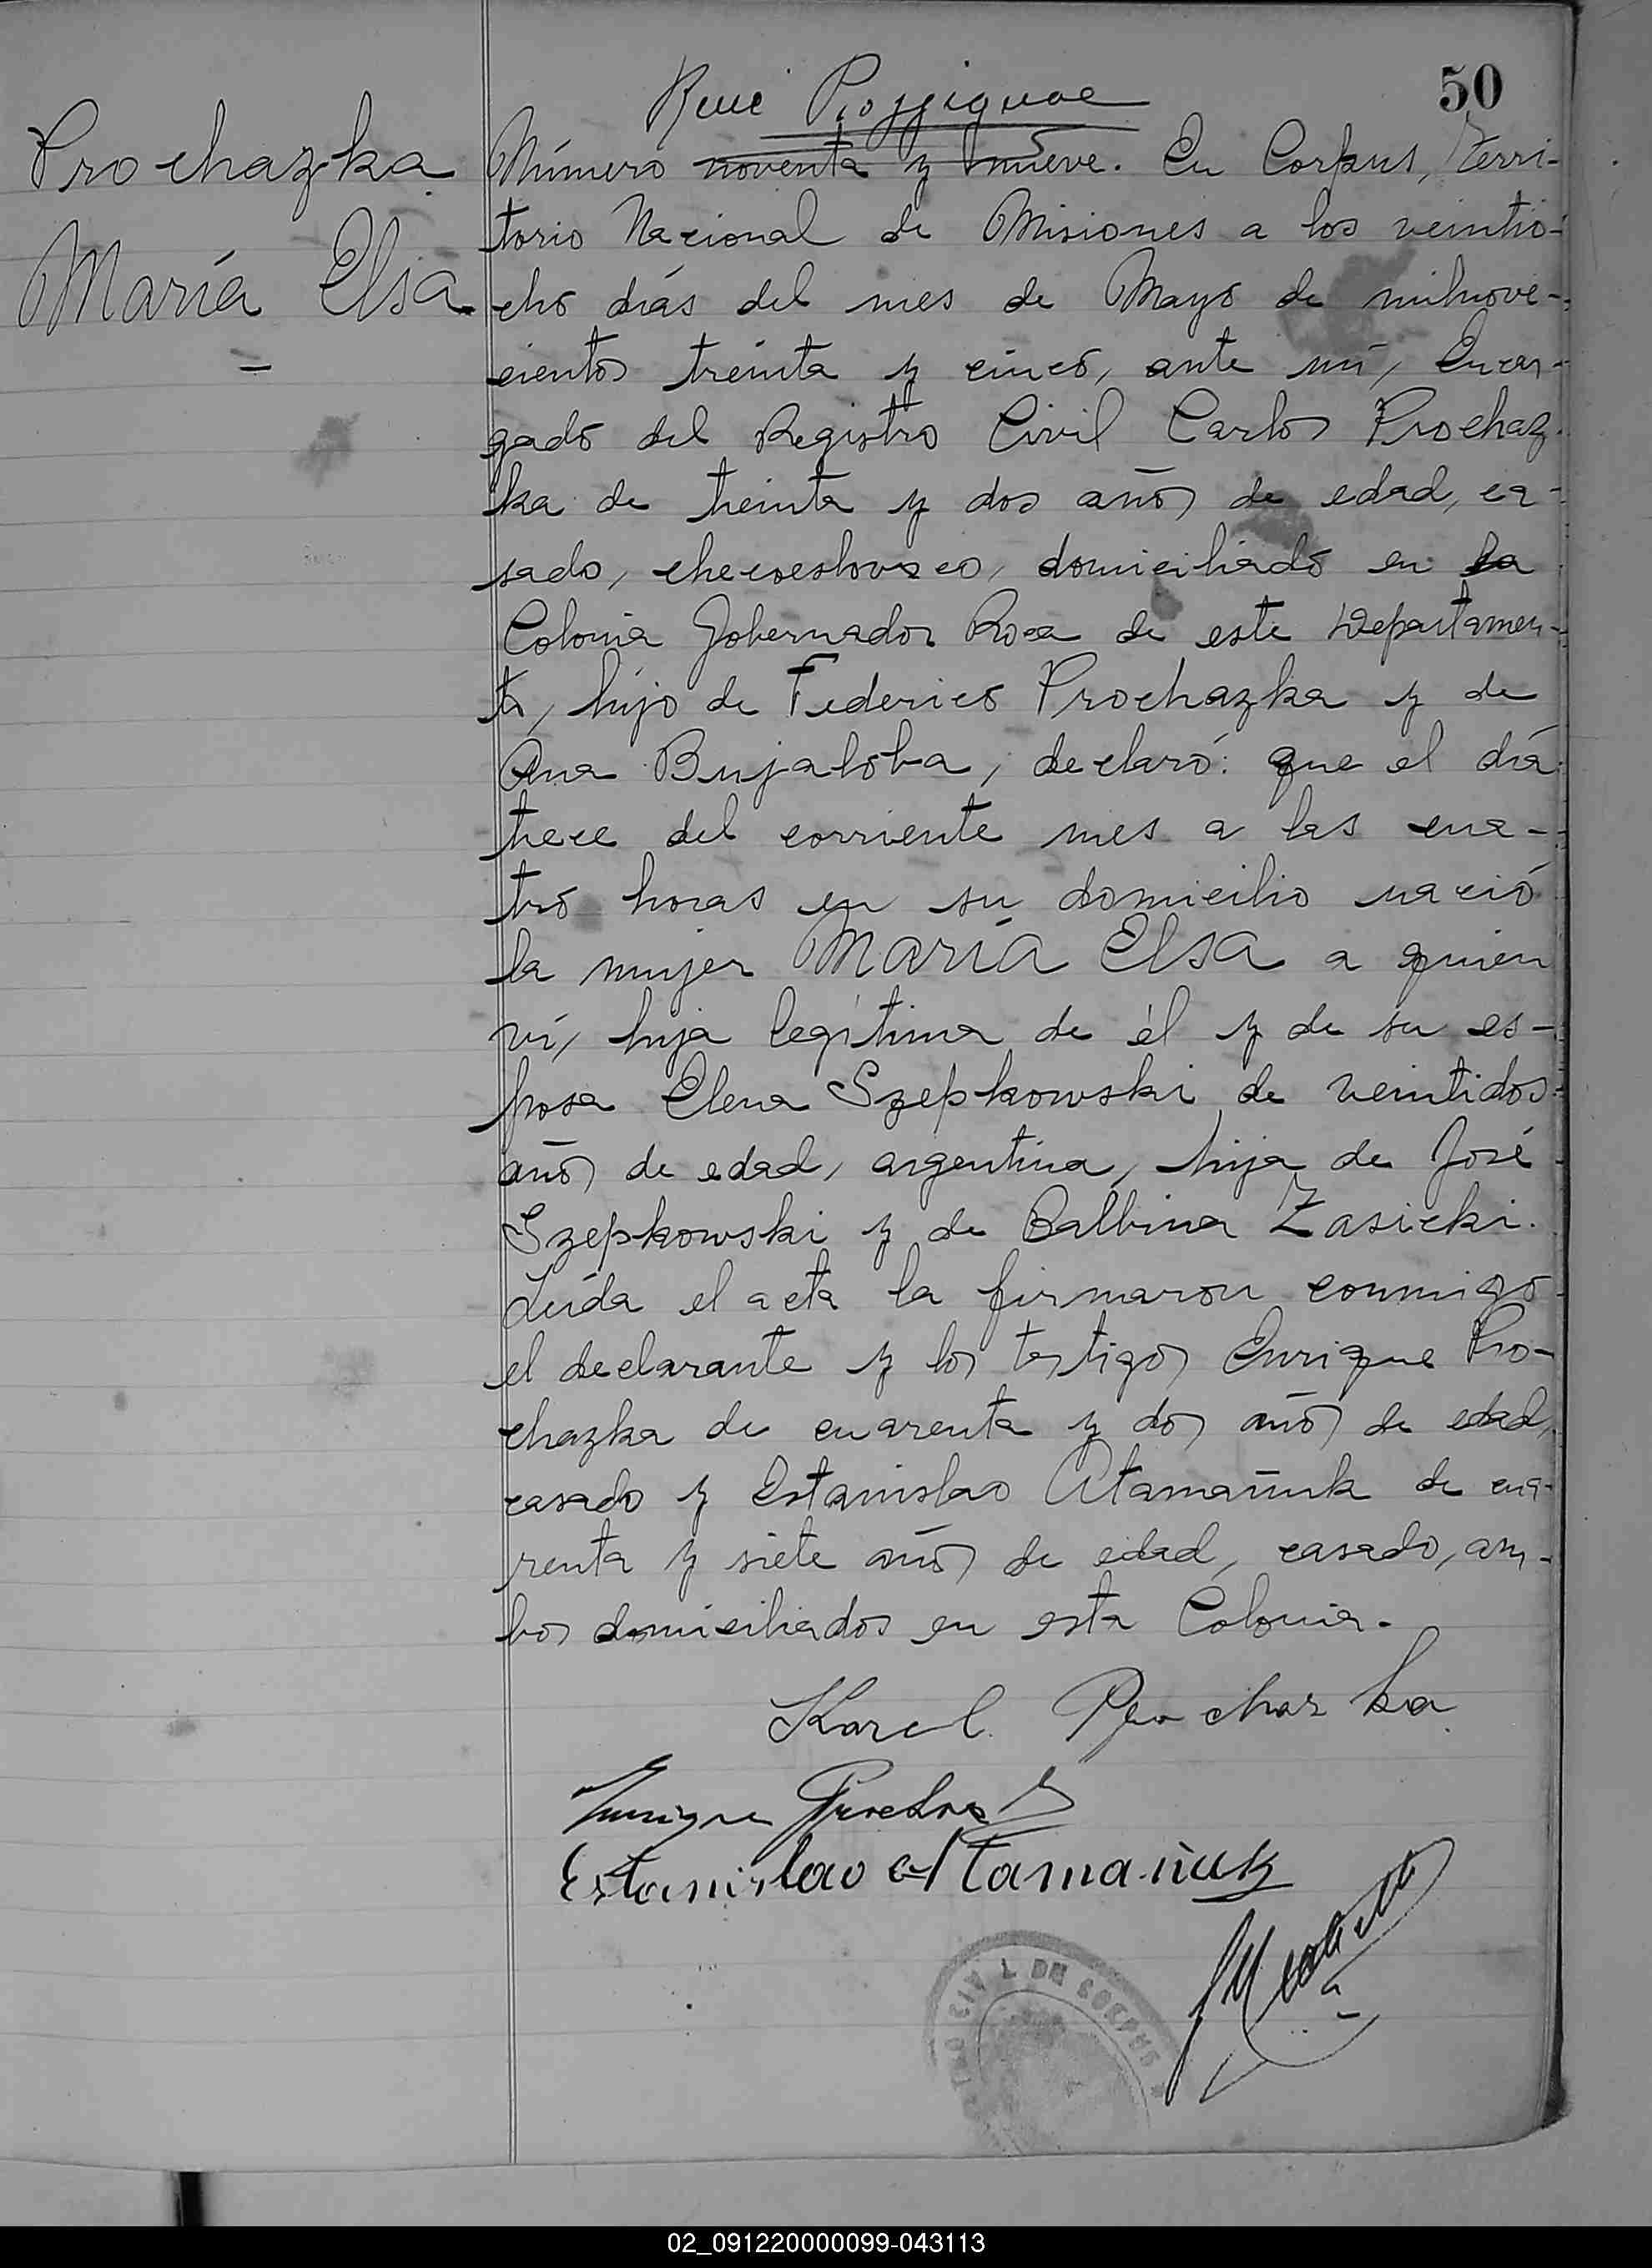 50
Prochazka
María Elsa
Número noventa y nueve. En Corpus, Terri-
torio Nacional de Misiones a los veintio-
cho días del mes de Mayo de milnove-
cientos treinta y cinco, ante mí, Encar-
gado del Registro Civil Carlos Prochaz-
ka de treinta y dos años de edad, ca-
sado, checoeslovaco, domiciliado en la
Colonia Gobernador Roca de este Departamen-
to, hijo de Federico Prochazka y de
Ana Bujaloba, declaró: que el día
trece del corriente mes a las cua-
tro horas en su domicilio nació
la mujer MARÍA ELSA a quien
ví, hija legítima de él y de su es-
posa Elena Szepkowski de veintidos
años de edad, argentina, hija de José
Szepkowski y de Balbina Zasicki.
Leída el acta la firmaron conmigo
el declarante y los testigos Enrique Pro-
chazka de cuarenta y dos años de edad,
casado y Estanislao Atamañuk de cua-
renta y siete años de edad, casado, am-
bos domiciliados en esta Colonia.
Karel Prochazka
Enrique
Estanislao Atamañuk
CIVIL DE CORPUS
02_091220000099-043113